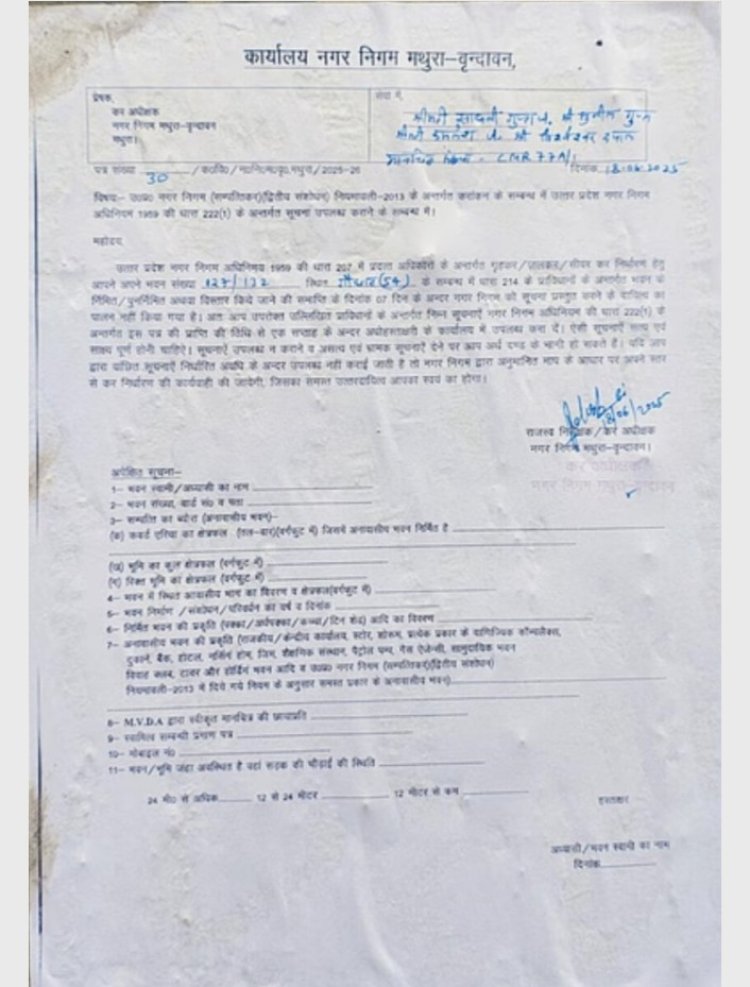 कार्यालय नगर निगम मथुरा-वृन्दावन,
प्रेषक,
कर अधीक्षक
नगर निगम मथुरा-वृन्दावन
मथुरा।
सेवा में,
श्रीमती गुप्ता श्री सुनील गुप्ता
श्रीमती श्री
पत्र संख्या 30 /क0वि0/न0नि0म0वृ0,मथुरा/2025-26
दिनांक 18.06.2025
विषय:- उ0प्र0 नगर निगम (सम्पत्तिकर)(द्वितीय संशोधन) नियमावली-2013 के अन्तर्गत करांकन के सम्बन्ध में उत्तर प्रदेश नगर निगम
अधिनियम 1959 की धारा 222(1) के अन्तर्गत सूचना उपलब्ध कराने के सम्बन्ध में।
महोदय,
उत्तर प्रदेश नगर निगम अधिनियम 1959 की धारा 207 में प्रदत्त अधिकारों के अन्तर्गत गृहकर/जलकर/सीवर कर निर्धारण हेतु
आपने अपने भवन संख्या 127/132 स्थित (54) के सम्बन्ध में धारा 214 के प्राविधानों के अन्तर्गत भवन के
निर्मित/पुनर्निमित अथवा विस्तार किये जाने की समाप्ति के दिनांक 07 दिन के अन्दर नगर निगम को सूचना प्रस्तुत करने के दायित्व का
पालन नहीं किया गया है। अतः आप उपरोक्त उल्लिखित प्राविधानों के अन्तर्गत निम्न सूचनाऐं नगर निगम अधिनियम की धारा 222(1) के
अन्तर्गत इस पत्र की प्राप्ति की तिथि से एक सप्ताह के अन्दर अधोहस्ताक्षरी के कार्यालय में उपलब्ध करा दें। ऐसी सूचनाऐं सत्य एवं
साक्ष्य पूर्ण होनी चाहिए। सूचनाऐं उपलब्ध न कराने व असत्य एवं भ्रामक सूचनाऐं देने पर आप अर्थ दण्ड के भागी हो सकते हैं। यदि आप
द्वारा वांछित सूचनाऐं निर्धारित अवधि के अन्दर उपलब्ध नहीं कराई जाती है तो नगर निगम द्वारा अनुमानित माप के आधार पर अपने स्तर
से कर निर्धारण की कार्यवाही की जायेगी, जिसका समस्त उत्तरदायित्व आपका स्वयं का होगा।
18/06/2025
राजस्व निरीक्षक/कर अधीक्षक
नगर निगम मथुरा-वृन्दावन।
नगर निगम मथुरा-वृन्दावन
अपेक्षित सूचना-
1- भवन स्वामी/अध्यासी का नाम
2- भवन संख्या, वार्ड सं0 व पता
3- सम्पत्ति का ब्योरा (अनावासीय भवन)-
(क) कवर्ड एरिया का क्षेत्रफल (तल-वार)(वर्गफुट में) जिसमें अनावासीय भवन निर्मित है
(ख) भूमि का कुल क्षेत्रफल (वर्गफुट में)
(ग) रिक्त भूमि का क्षेत्रफल (वर्गफुट में)
4- भवन में स्थित आवासीय भाग का विवरण व क्षेत्रफल(वर्गफुट में)
5- भवन निर्माण /संशोधन/परिवर्धन का वर्ष व दिनांक
6- निर्मित भवन की प्रकृति (पक्का/अर्धपक्का/कच्चा/टिन शेड) आदि का विवरण
7- अनावासीय भवन की प्रकृति (राजकीय/केन्द्रीय कार्यालय, स्टोर, शोरूम, प्रत्येक प्रकार के वाणिज्यिक कॉम्पलैक्स,
दुकानें, बैंक, होटल, नर्सिंग होम, जिम, शैक्षणिक संस्थान, पैट्रोल पम्प, गैस ऐजेन्सी, सामुदायिक भवन
विवाह स्थल, टावर और होर्डिंग भवन आदि व उ0प्र0 नगर निगम (सम्पत्तिकर)(द्वितीय संशोधन)
नियमावली-2013 में दिये गये नियम के अनुसार समस्त प्रकार के अनावासीय भवन)
8- M.V.D.A द्वारा स्वीकृत मानचित्र की छायाप्रति
9- स्वामित्व सम्बन्धी प्रमाण पत्र
10- मोबाइल नं0
11- भवन/भूमि जहां अवस्थित है वहां सड़क की चौड़ाई की स्थिति
24 मी0 से अधिक 12 से 24 मीटर 12 मीटर से कम
हस्ताक्षर
अध्यासी/भवन स्वामी का नाम
दिनांक